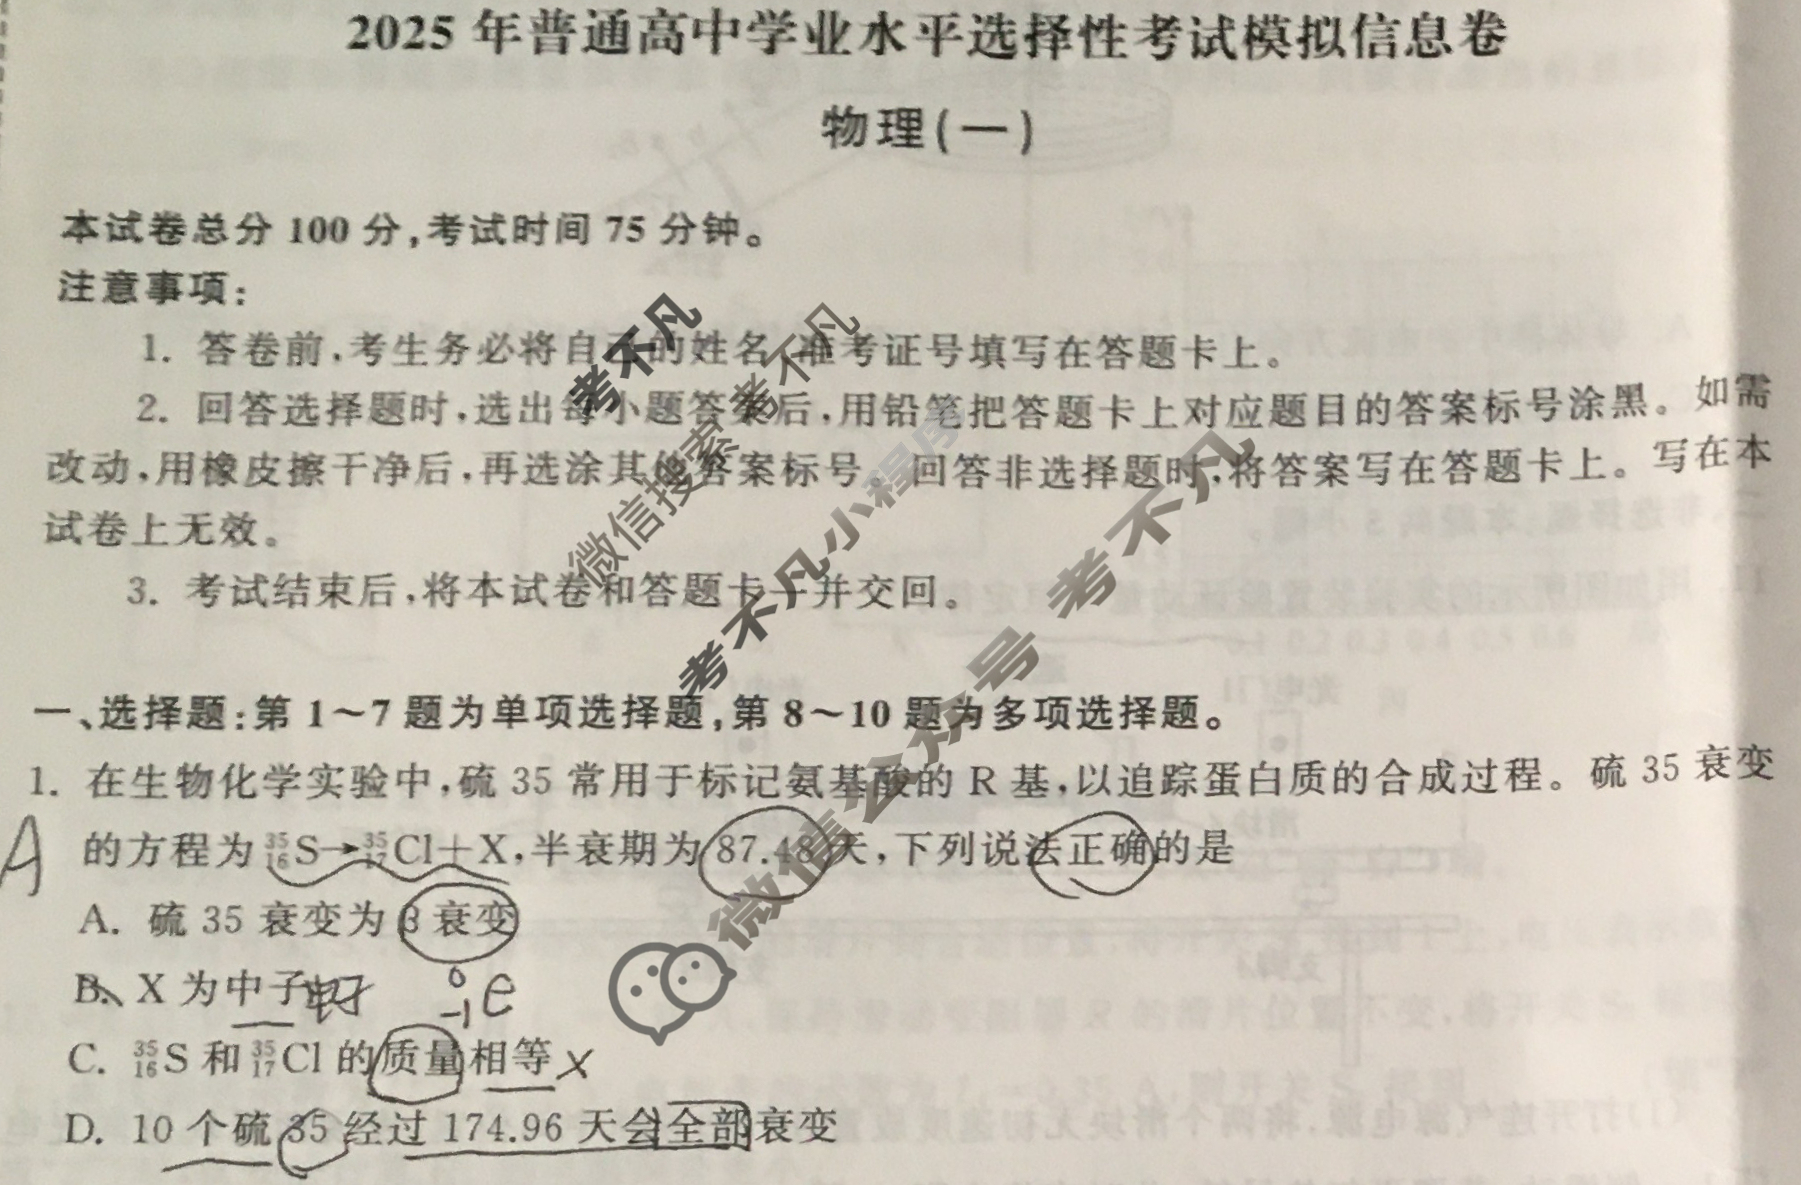 2025年普通高中学业水平选择性考试模拟信息卷
物理(一)
本试卷总分100分,考试时间75分钟。
注意事项:
1. 答卷前,考生务必将自己的姓名、准考证号填写在答题卡上。
2. 回答选择题时,选出每小题答案后,用铅笔把答题卡上对应题目的答案标号涂黑。如需
改动,用橡皮擦干净后,再选涂其他答案标号。回答非选择题时,将答案写在答题卡上。写在本
试卷上无效。
3. 考试结束后,将本试卷和答题卡一并交回。
一、选择题:第1~7题为单项选择题,第8~10题为多项选择题。
1. 在生物化学实验中,硫35常用于标记氨基酸的R基,以追踪蛋白质的合成过程。硫35衰变
A 的方程为 ³⁵₁₆S→³⁵₁₇Cl+X,半衰期为87.48天,下列说法正确的是
A. 硫35衰变为β衰变
B. X为中子 电子 ⁰₋₁e
C. ³⁵₁₆S和³⁵₁₇Cl的质量相等 ×
D. 10个硫35经过174.96天会全部衰变
考不凡
考不凡
微信搜索
考不凡小程序
微信公众号 考不凡